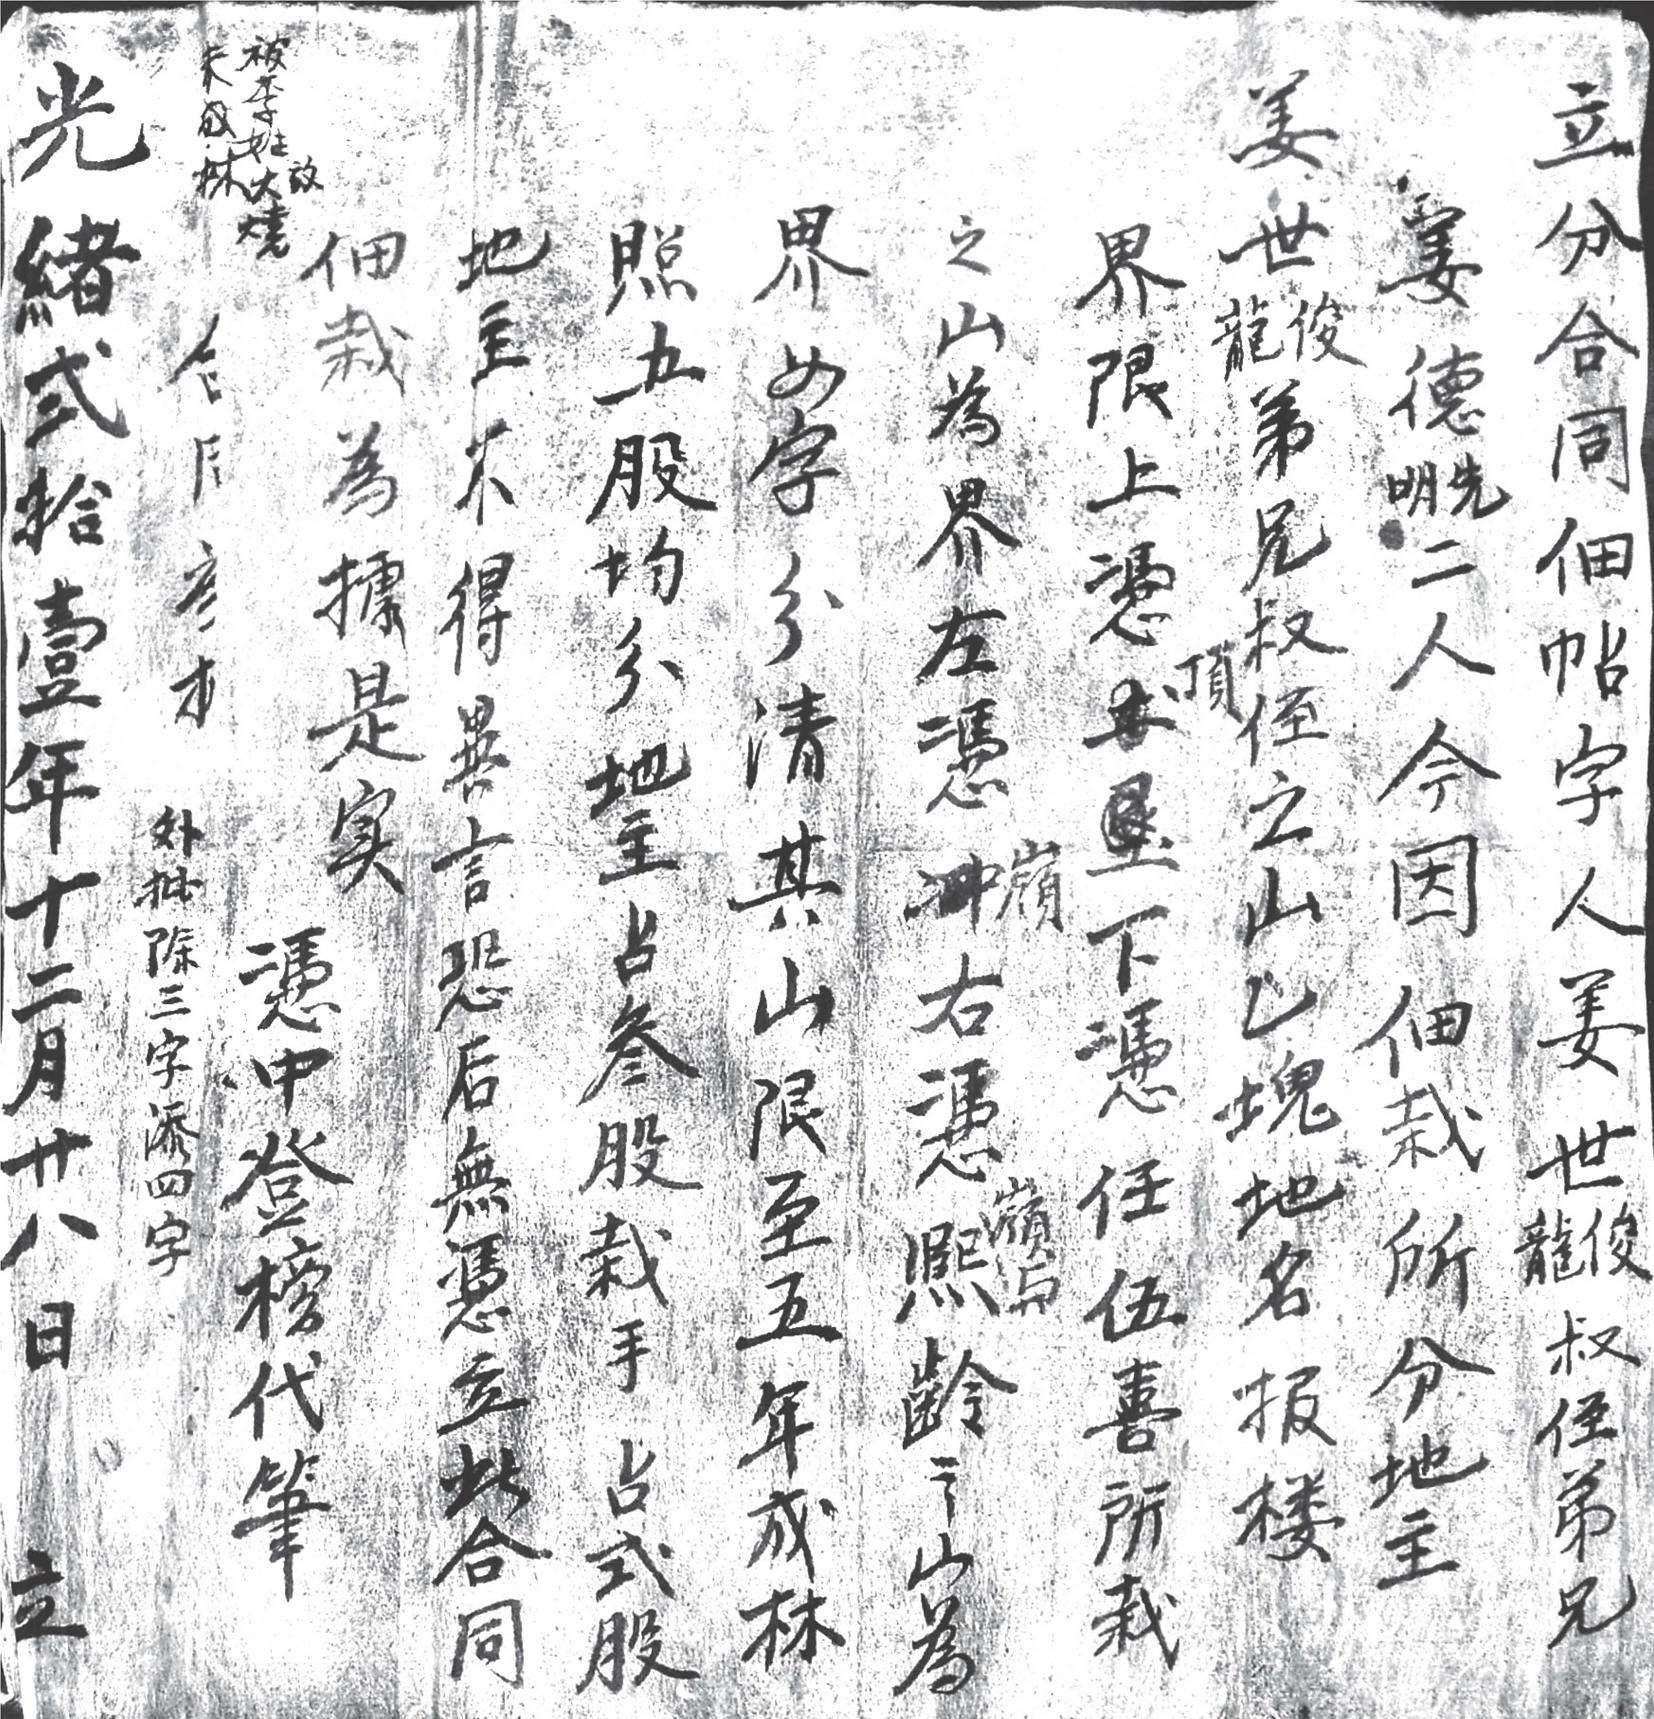 立分合同佃帖字人姜世俊龍叔侄弟兄
姜德先明二人今因佃栽所分地主
姜世俊龍弟兄叔侄之山乙塊地名报楼
界限上憑頂下憑任伍喜所栽
之山為界左憑嶺右憑熙齡之山為
界四字分清其山限至五年成林
照五股均分地主占叁股栽手占弍股
地主不得異言恐后無憑立此合同
佃栽為據是实
憑中登榜代筆
被李姓放火燒
未成林
外批除三字添四字
光緒弍拾壹年十二月廿八日立